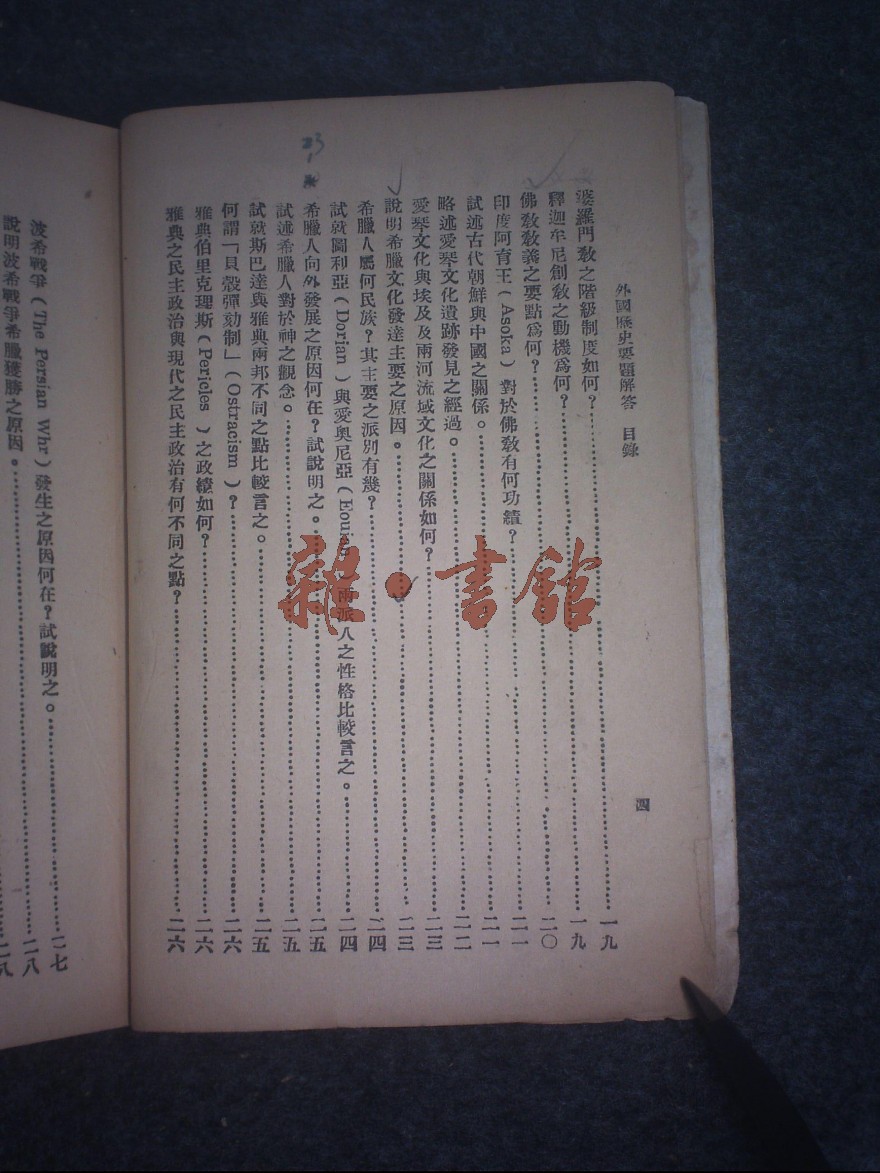 外國歷史要題解答　目錄
四
婆羅門敎之階級制度如何？……一九
釋迦牟尼創敎之動機爲何？……一九
佛敎敎義之要點爲何？……二〇
印度阿育王（Asoka）對於佛敎有何功績？……二一
試述古代朝鮮與中國之關係。……二一
略述愛琴文化遺跡發見之經過。……二二
愛琴文化與埃及及兩河流域文化之關係如何？……二三
說明希臘文化發達主要之原因。……二三
希臘人屬何民族？其主要之派別有幾？……二四
試就圖利亞（Dorian）與愛奧尼亞（ 兩派人之性格比較言之。……二四
希臘人向外發展之原因何在？試說明之。……二五
試述希臘人對於神之觀念。……二五
試就斯巴達與雅典兩邦不同之點比較言之。……二五
何謂「貝殼彈劾制」（Ostracism）？……二六
雅典伯里克理斯（Pericles）之政績如何？……二六
雅典之民主政治與現代之民主政治有何不同之點？……二六
波希戰爭（The Persian Whr）發生之原因何在？試說明之。……二七
說明波希戰爭希臘獲勝之原因。……二八
二八
23
雜·書館